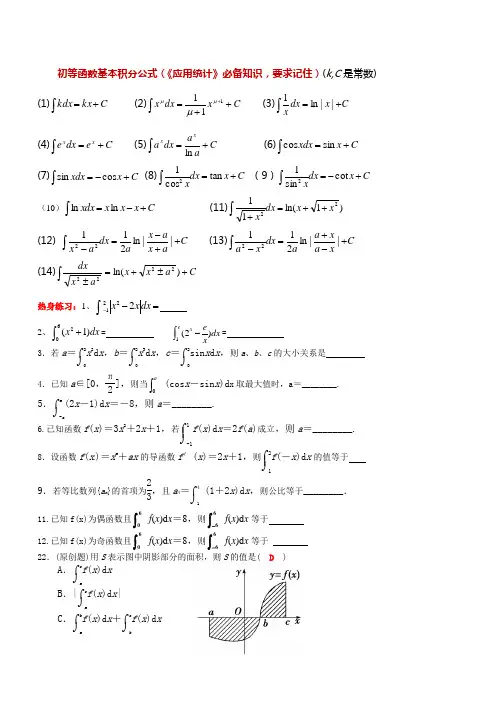 初等函数基本积分公式（《应用统计》必备知识，要求记住）(k,C 是常数)
(1) ∫kdx = kx + C (2) ∫x^μ dx = 1/(μ+1) x^(μ+1) + C (3) ∫1/x dx = ln|x| + C
(4) ∫e^x dx = e^x + C (5) ∫a^x dx = a^x/ln a + C (6) ∫cos xdx = sin x + C
(7) ∫sin xdx = −cos x + C (8) ∫1/cos² x dx = tan x + C （9）∫1/sin² x dx = −cot x + C
（10）∫ln xdx = x ln x − x + C (11) ∫1/√(1+x²) dx = ln(x + √(1+x²))
(12) ∫1/(x²−a²) dx = 1/2a ln|(x−a)/(x+a)| + C (13) ∫1/(a²−x²) dx = 1/2a ln|(a+x)/(a−x)| + C
(14) ∫dx/√(x²±a²) = ln(x + √(x²±a²)) + C
热身练习：1、∫_{-1}^{2} |x² − 2x|dx =
2、∫_0^6 (x²+1)dx= ∫_1^e (2^x − e/x)dx=
3．若 a＝∫_0^2 x²dx，b＝∫_0^2 x³dx，c＝∫_0^2 sinxdx，则 a、b、c 的大小关系是
4．已知 a∈[0，π/2]，则当∫_0^a (cosx－sinx)dx 取最大值时，a＝________.
5．∫_{-a}^a (2x－1)dx＝－8，则 a＝________.
6.已知函数 f(x)＝3x²＋2x＋1，若∫_{-1}^1 f(x)dx＝2f(a)成立，则 a＝________.
8．设函数 f(x)＝x^m＋ax 的导函数 f′ (x)＝2x＋1，则∫_1^2 f(－x)dx 的值等于
9．若等比数列{a_n}的首项为2/3，且 a₄＝∫_1^4 (1＋2x)dx，则公比等于________．
11.已知 f(x)为偶函数且∫_0^6 f(x)dx＝8，则∫_{-6}^6 f(x)dx 等于
12.已知 f(x)为奇函数且∫_0^6 f(x)dx＝8，则∫_{-6}^6 f(x)dx 等于
22．(原创题)用 S 表示图中阴影部分的面积，则 S 的值是( D )
A．∫_a^c f(x)dx
B．|∫_a^c f(x)dx|
C．∫_a^b f(x)dx＋∫_b^c f(x)dx
y
y=f(x)
a O b c x